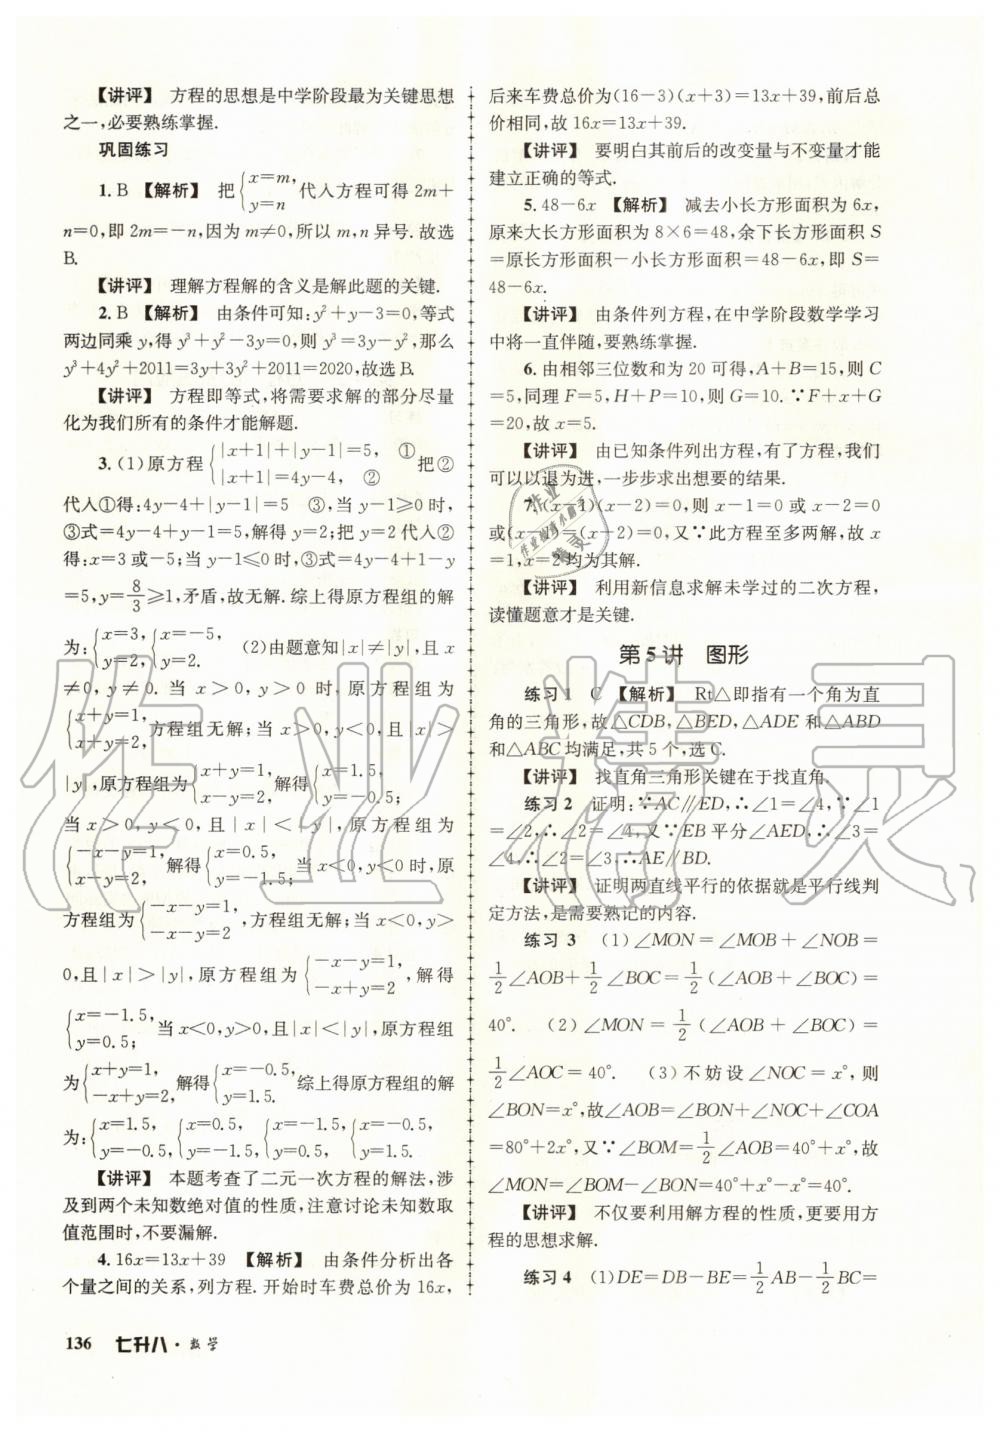 【讲评】 方程的思想是中学阶段最为关键思想
之一,必要熟练掌握.
巩固练习
1. B 【解析】 把{x=m, y=n 代入方程可得 2m+
n=0,即 2m=-n,因为 m≠0,所以 m,n 异号.故选
B.
【讲评】 理解方程解的含义是解此题的关键.
2. B 【解析】 由条件可知:y²+y-3=0,等式
两边同乘 y,得 y³+y²-3y=0,则 y³=3y-y²,那么
y³+4y²+2011=3y+3y²+2011=2020,故选 B.
【讲评】 方程即等式,将需要求解的部分尽量
化为我们所有的条件才能解题.
3. (1)原方程{|x+1|+|y-1|=5, ① |x+1|=4y-4, ② 把②
代入①得:4y-4+|y-1|=5 ③,当 y-1≥0 时,
③式=4y-4+y-1=5,解得 y=2;把 y=2 代入②
得:x=3 或-5;当 y-1≤0 时,③式=4y-4+1-y
=5,y=8/3≥1,矛盾,故无解.综上得原方程组的解
为:{x=3, y=2. {x=-5, y=2. (2)由题意知|x|≠|y|,且 x
≠0,y≠0. 当 x>0,y>0 时,原方程组为
{x+y=1, x+y=2, 方程组无解;当 x>0,y<0,且|x|>
|y|,原方程组为{x+y=1, x-y=2, 解得{x=1.5, y=-0.5;
当 x>0,y<0,且|x|<|y|,原方程组为
{-x-y=1, x-y=2, 解得{x=0.5, y=-1.5; 当 x<0,y<0 时,原
方程组为{-x-y=1, -x-y=2 ,方程组无解;当 x<0,y>
0,且|x|>|y|,原方程组为{-x-y=1, -x+y=2 ,解得
{x=-1.5, y=0.5; 当 x<0,y>0,且|x|<|y|,原方程组
为{x+y=1, -x+y=2, 解得{x=-0.5, y=1.5. 综上得原方程组的解
为:{x=1.5, y=-0.5, {x=0.5, y=-1.5, {x=-1.5, y=0.5, {x=-0.5, y=1.5.
【讲评】 本题考查了二元一次方程的解法,涉
及到两个未知数绝对值的性质,注意讨论未知数取
值范围时,不要漏解.
4. 16x=13x+39 【解析】 由条件分析出各
个量之间的关系,列方程.开始时车费总价为 16x,
后来车费总价为(16-3)(x+3)=13x+39,前后总
价相同,故 16x=13x+39.
【讲评】 要明白其前后的改变量与不变量才能
建立正确的等式.
5. 48-6x 【解析】 减去小长方形面积为 6x,
原来大长方形面积为 8×6=48,余下长方形面积 S
=原长方形面积-小长方形面积=48-6x,即 S=
48-6x.
【讲评】 由条件列方程,在中学阶段数学学习
中将一直伴随,要熟练掌握.
6. 由相邻三位数和为 20 可得,A+B=15,则 C
=5,同理 F=5,H+P=10,则 G=10.∵F+x+G
=20,故 x=5.
【讲评】 由已知条件列出方程,有了方程,我们
可以以退为进,一步步求出想要的结果.
7. (x-1)(x-2)=0,则 x-1=0 或 x-2=0
或(x-1)(x-2)=0,又∵此方程至多两解,故 x
=1,x=2 均为其解.
【讲评】 利用新信息求解未学过的二次方程,
读懂题意才是关键.
第 5 讲 图形
练习 1 C 【解析】 Rt△即指有一个角为直
角的三角形,故△CDB,△BED,△ADE 和△ABD
和△ABC 均满足,共 5 个,选 C.
【讲评】 找直角三角形关键在于找直角.
练习 2 证明:∵AC∥ED,∴∠1=∠4,∵∠1
=∠2,∴∠2=∠4,又∵EB 平分∠AED,∴∠3=
∠4,∴∠2=∠3,∴AE∥BD.
【讲评】 证明两直线平行的依据就是平行线判
定方法,是需要熟记的内容.
练习 3 (1)∠MON=∠MOB+∠NOB=
1/2∠AOB+1/2∠BOC=1/2(∠AOB+∠BOC)=
40°. (2)∠MON=1/2(∠AOB+∠BOC)=
1/2∠AOC=40°. (3)不妨设∠NOC=x°,则
∠BON=x°,故∠AOB=∠BON+∠NOC+∠COA
=80°+2x°,又∵∠BOM=1/2∠AOB=40°+x°,故
∠MON=∠BOM-∠BON=40°+x°-x°=40°.
【讲评】 不仅要利用解方程的性质,更要用方
程的思想求解.
练习 4 (1)DE=DB-BE=1/2AB-1/2BC=
136 七升八·数学
作业精灵